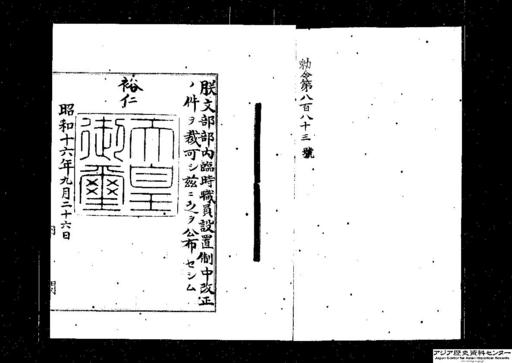 勅令第八百八十三號
朕文部部內臨時職員設置制中改正
ノ件ヲ裁可シ茲ニ之ヲ公布セシム
裕仁
天皇御璽
昭和十六年九月二十六日
內閣
アジア歴史資料センター
Japan Center for Asian Historical Records